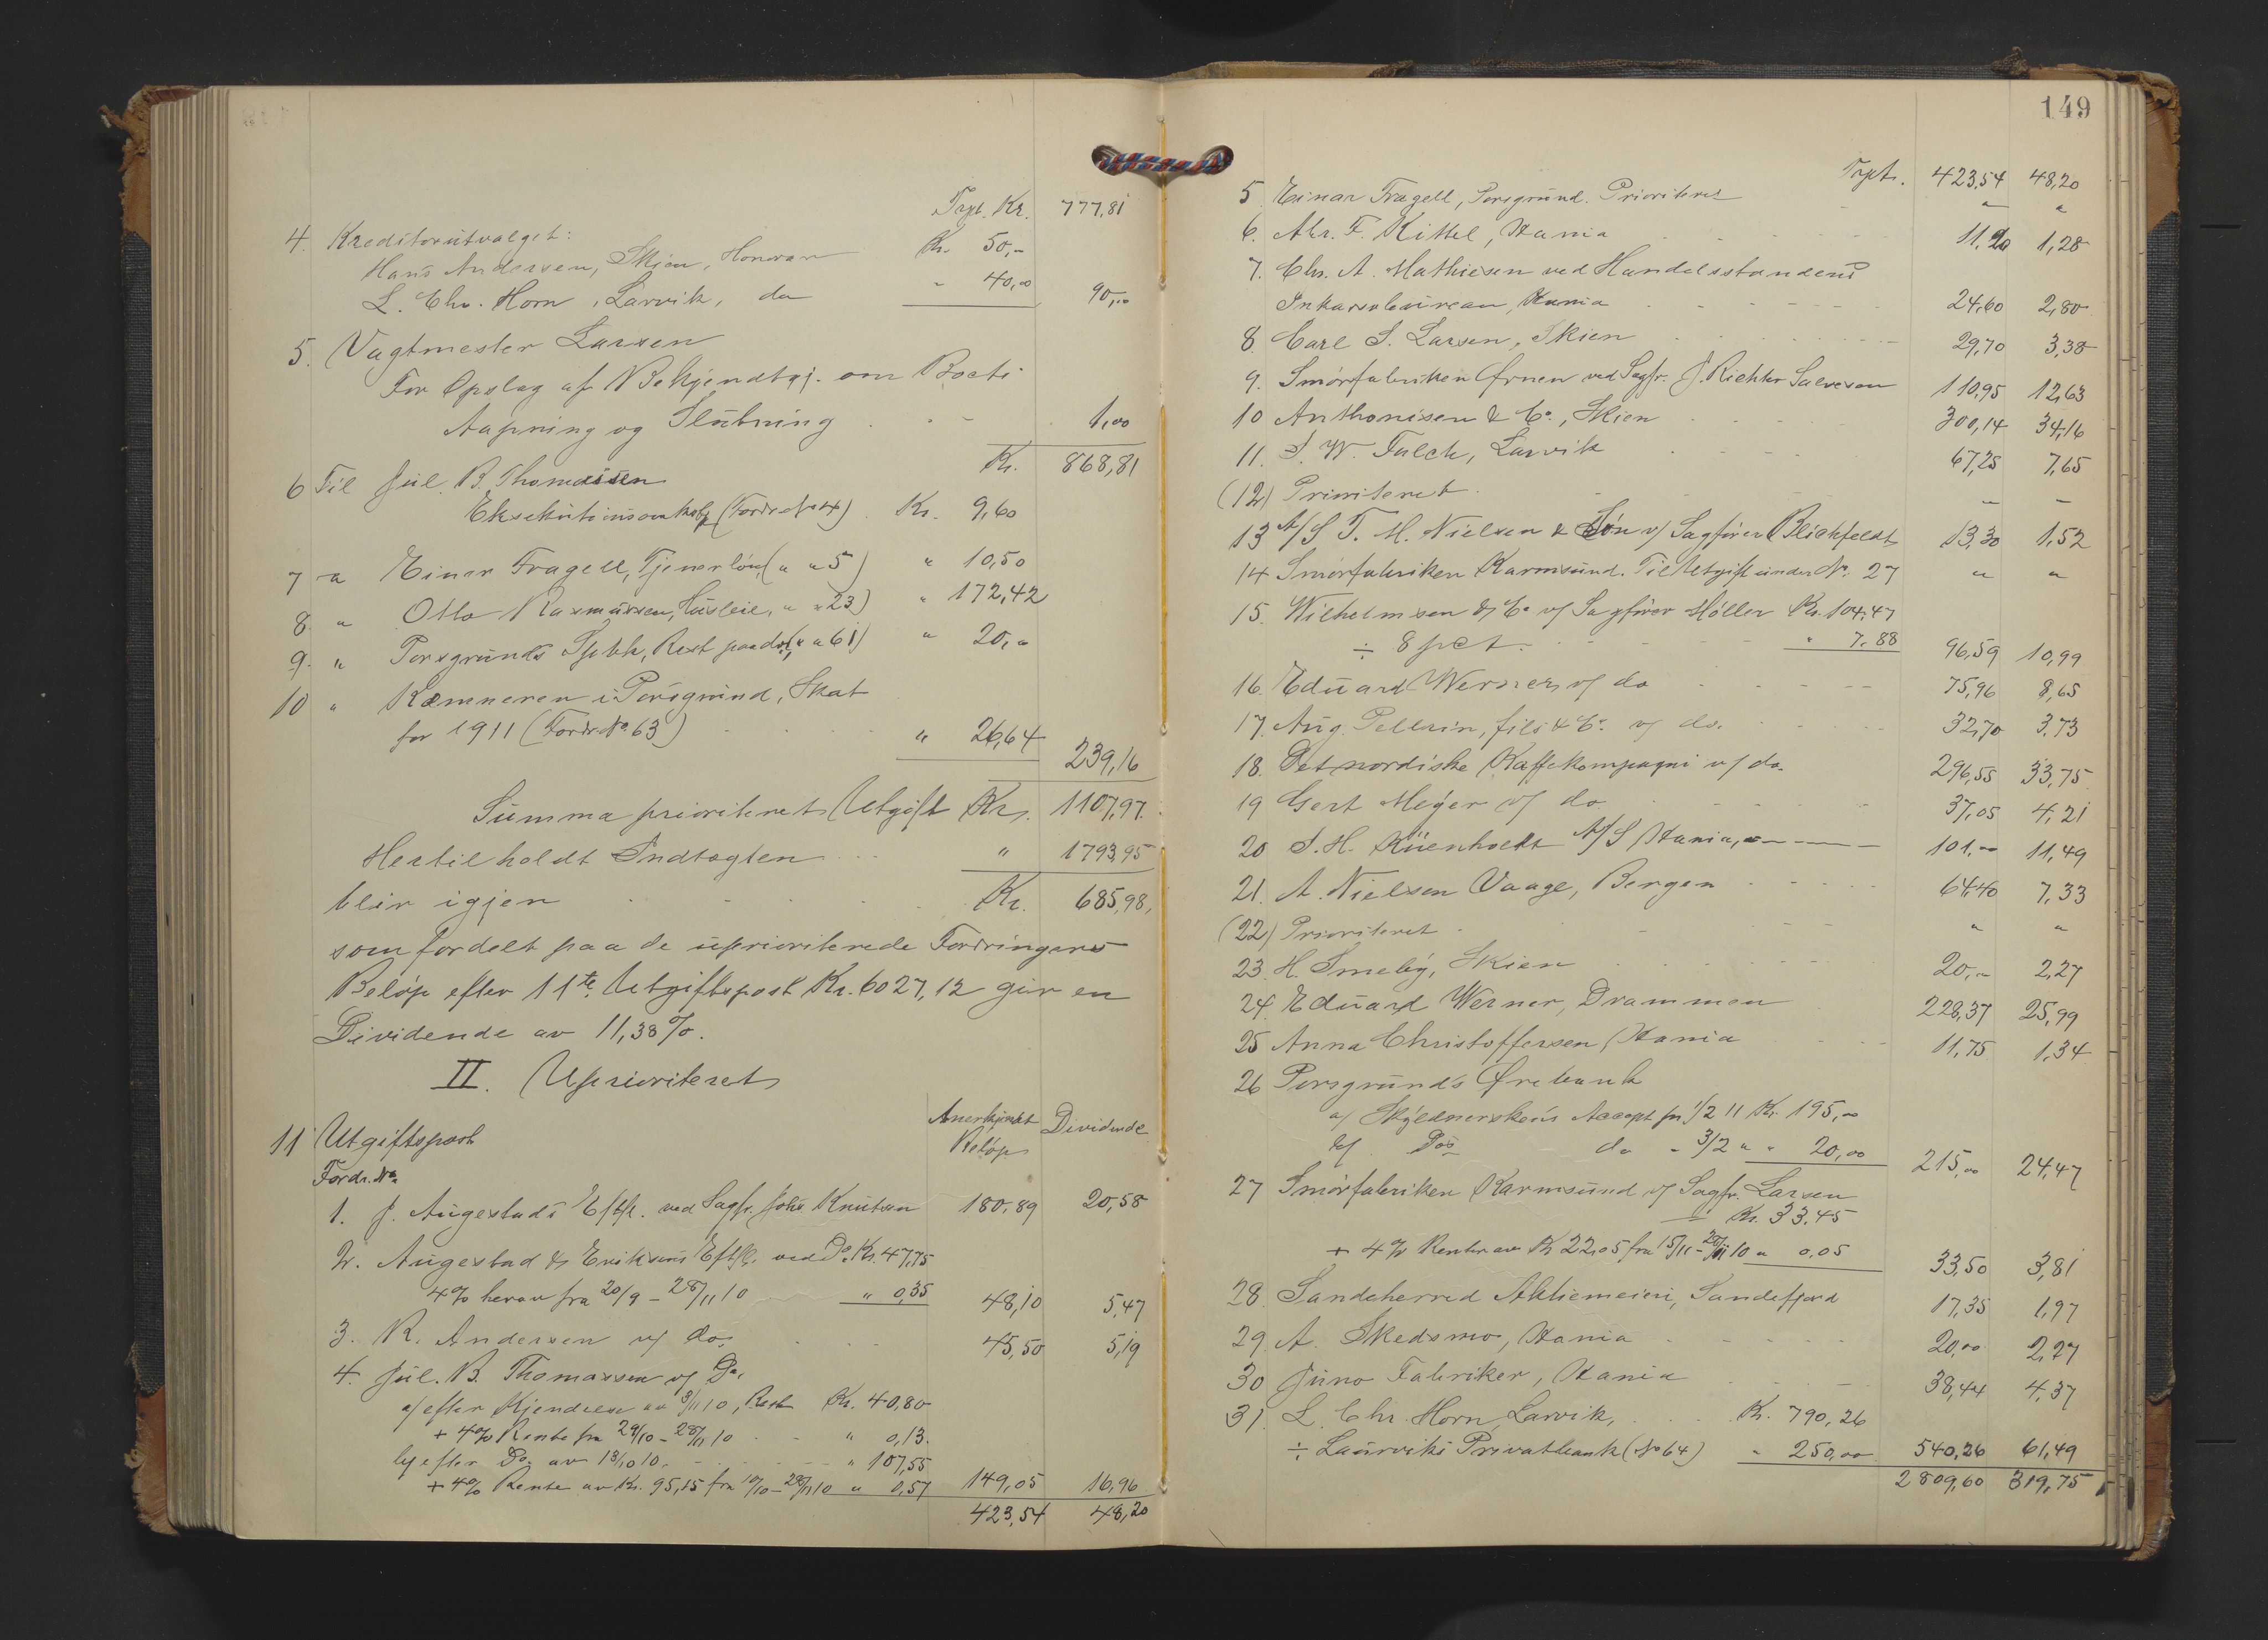 Trpt. Kr. 777,81
4. Kreditorutvalget:
Hans Andersen, Skien, Honorar Kr. 50,-
L. Chr. Horn, Larvik, do " 40,00 90,00
5. Vagtmester Larsen
For Opslag af Bekjendtgj. om Boets
Aapning og Slutning . - 1,00
Kr. 868,81
6 Til Jul. B. Thomassen
Eksekutionsomkostg (Fordr No 4) Kr. 9,60
7 " Einar Fragell, Tjenerløn (" " 5) " 10,50
8. " Otto Rasmussen, Husleie, " " 23) " 172,42
9. " Porsgrunds Spbk, Rest paa do (" " 61) " 20,"
10 " Kæmneren i Porsgrund, Skat
for 1911 (Fordr. No. 63) " 26,64 239,16
Summa prioriteret Utgift Kr. 1107,97.
Hertil holdt Indtægten " 1793,95
blir igjen Kr. 685,98,
som fordelt paa de uprioriterede Fordringers
Beløp efter 11te Utgiftspost Kr. 6027,12 gir en
Dividende av 11,38%.
II. Uprioriteret
11 Utgiftspost Anerkjendt Beløp Dividende
Fordr. No.
1. J. Augestads Eftf. ved Sagfr. Johs Knutsen 180,89 20,58
2. Augestad & Eriksens Eftf. ved Do. Kr. 47,75
4% herav fra 20/9 - 28/11 10 " 0,35 48,10 5,47
3. R. Andersen v/ do, 45,50 5,19
4. Jul. B. Thomassen v/ Do,
a/ efter Kjendelse av 3/11 10, Rest Kr. 40,80
+ 4% Rente fra 29/10 - 28/11 10 " 0,13.
b/ efter Do. av 13/10 10. " 107,55
+ 4% Rente av Kr. 95,15 fra 10/10 - 28/11 10 " 0,57 149,05 16,96
423,54 48,20
149
Trpt. 423,54 48,20
5. Einar Fragell, Porsgrund. Prioriteret " "
6. Alr. F. Kittel, Kania 11,20 1,28
7. Chr. A. Mathiesen ved Handelsstandens
Inkassobureau, Kania 24,60 2,80
8. Carl S. Larsen, Skien 29,70 3,38
9. Smørfabriken Ørnen ved Sagfr. J. Richter Salvesen 110,95 12,63
10 Anthonisen & Co., Skien 300,14 34,16
11. S. W. Falch, Larvik 67,25 7,65
(12) Prioriteret - -
13 A/S T. M. Nielsen & Søn v/ Sagfører Blichfeldt 13,30 1,52
14 Smørfabriken Karmsund. Til Utgift under No. 27 " "
15. Wilhelmsen & Co v/ Sagfører Møller Kr. 104,47
÷ 8 pct. " 7,88 96,59 10,99
16. Eduard Werner v/ do 75,96 8,65
17. Aug. Pellerin, fils & Co. v/ do. 32,70 3,73
18. Det nordiske Kaffekompagni v/ do. 296,55 33,75
19 Gert Meyer v/ do 37,05 4,21
20 S. H. Küenholdt A/S Kania, 101,00 11,49
21. A. Nielsen Vaage, Bergen 64,40 7,33
(22) Prioriteret " "
23. H. Smeby, Skien 20,- 2,27
24. Eduard Werner, Drammen 228,37 25,99
25 Anna Christoffersen, Kania 11,75 1,34
26 Porsgrunds Ørebank
a/ Skyldnerskens Accept pr. 1/2 11 Kr. 195,00
b/ Dos do " 3/2 " " 20,00 215,00 24,47
27 Smørfabriken Karmsund v/ Sagfr. Larsen
Kr. 33,45
+ 4% Renter av Kr 22,05 fra 15/11 - 28/11 10 " 0,05 33,50 3,81
28. Sandeherred Aktiemeieri, Sandefjord 17,35 1,97
29. A. Skedsmo, Kania 20,00 2,27
30 Juno Fabriker, Kania 38,44 4,37
31. L. Chr. Horn, Larvik, Kr. 790,26
÷ Laurviks Privatbank (No 64) " 250,00 540,26 61,49
2809,60 319,75